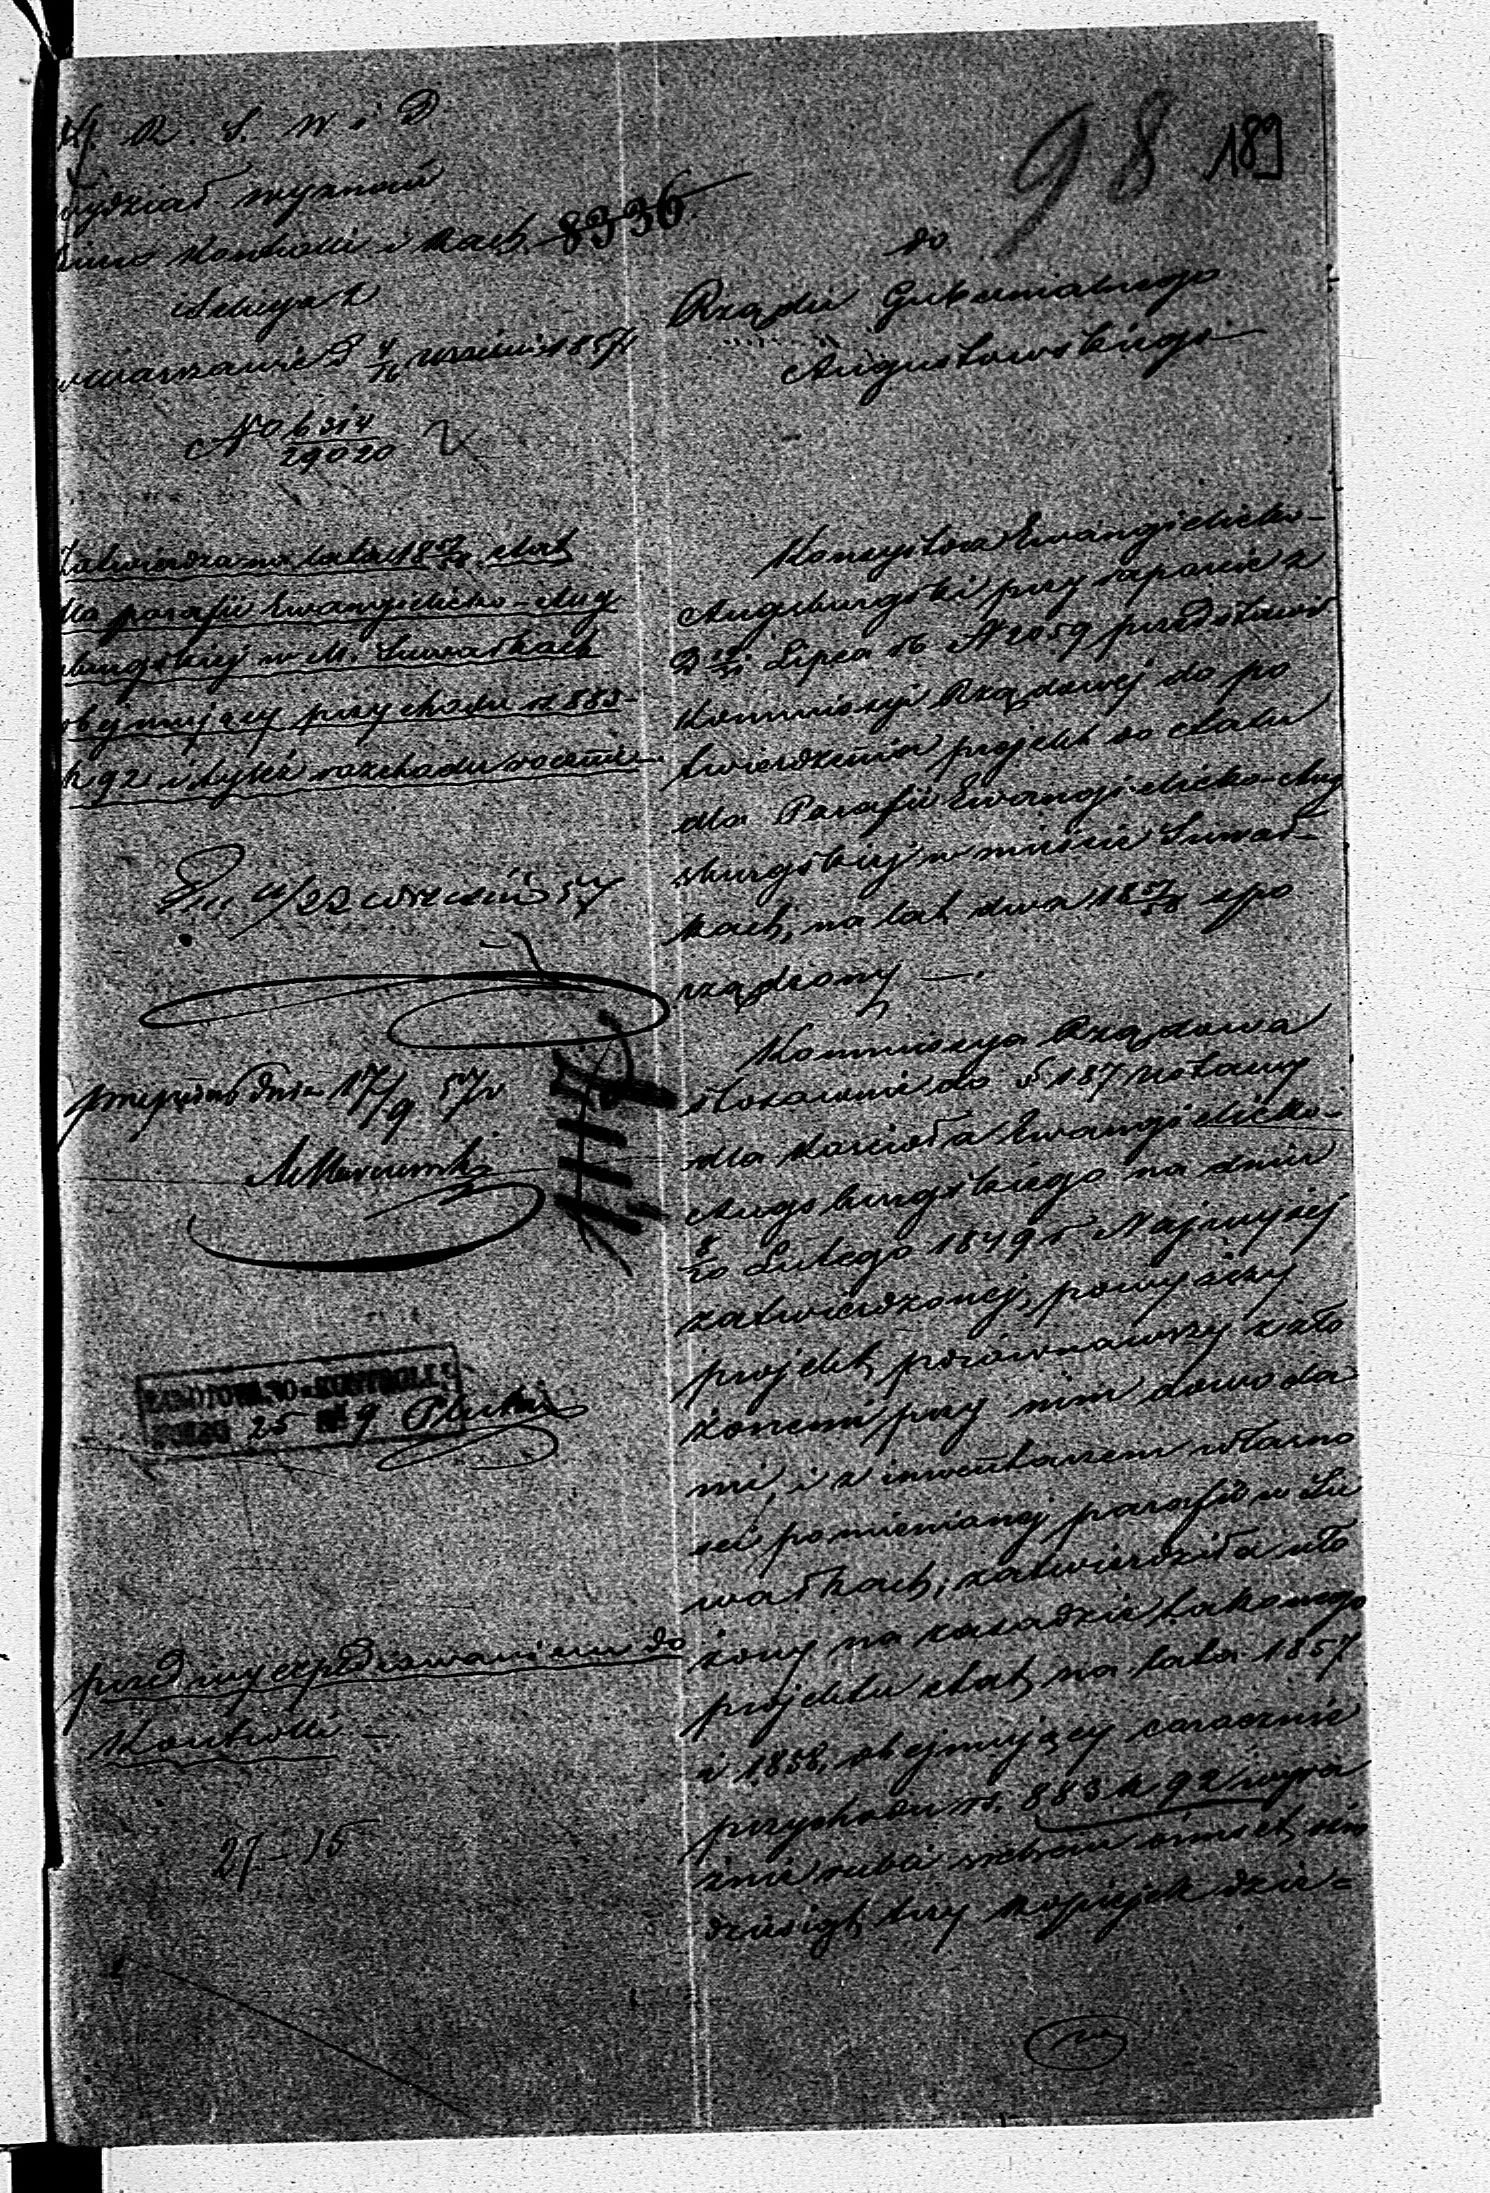 K. R. S. W i D
Wydział wyznań
Biuro Kontrolli i Rach. 8336.
Sekcya 2
w Warszawie D 4/16 wrześni 1857
No 6314/29020
Zatwierdza na lata 1857/58 etat
dla parafii Ewangielicko-Aug
sburgskiej w M. Suwałkach
obejmujący przychodu rs 883
k 92 i tyleż rozchodu rocznie.
Dn. 11/22 wrześni 57
przepisał dnia 17/9 57 r
ZANOTOWANO w KONTROLLI
25 9
przed wyexpedyowaniem do
Kontrolli —
27-15
98 189
do
Rządu Gubernialnego
Augustowskiego
Konsystorz Ewangielicko-
Augsburgski przy raporcie z
D 19/31 Lipca rb N 2059 przedstawił
Kommissyi Rządowej do po
twierdzenia projekt do etatu
dla Parafii Ewangielicko-Aug
sburgskiej w mieście Suwał-
kach, na lat dwa 1857/58 spo
rządzony —.
Kommissya Rządowa
stosownie do § 187 Ustawy
dla Kościoła Ewangielicko-
Augsburgskiego na dniu
8/20 Lutego 1849 r Najwyżej
zatwierdzonej, powyższy
projekt, porównawszy z zło
żonemi przy nim dowoda
mi, i z inwentarzem własno
ści pomienionej parafii w Su
wałkach, zatwierdziła uło
żony na zasadzie takowego
projektu etat, na lata 1857
i 1858, obejmujący corocznie
przychodu rs. 883 k 92 wyra
źnie rubli srebrem ośmset ośm
dziesiąt trzy kopiejek dzie=